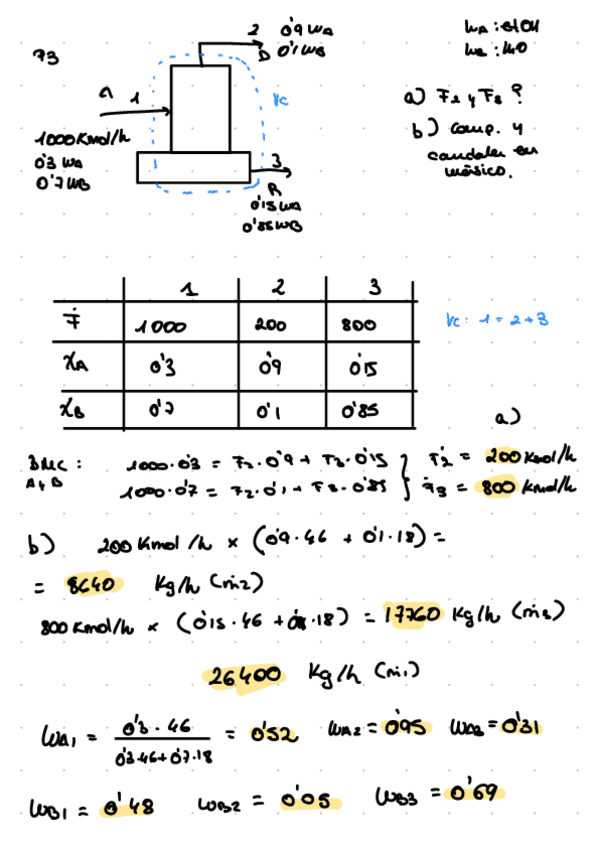 73
2 0'9 WA
D 0'1 WB
WA : EtOH
WB : H2O
A 1
VC
1000 Kmol/h
0'3 WA
0'7 WB
3
R
0'15 WA
0'85 WB
a) F2 y F3 ?
b) comp. y
caudales en
másico.
1 2 3
Ḟ 1000 200 800
XA 0'3 0'9 0'15
XB 0'7 0'1 0'85
VC : 1 = 2 + 3
a)
BMC : 1000·0'3 = F2·0'9 + F3·0'15 } Ḟ2 = 200 Kmol/h
A y B 1000·0'7 = F2·0'1 + F3·0'85 } Ḟ3 = 800 Kmol/h
b) 200 Kmol/h × (0'9·46 + 0'1·18) =
= 8640 Kg/h (ṁ2)
800 Kmol/h × (0'15·46 + ·18) = 17760 Kg/h (ṁ3)
26400 Kg/h (ṁ1)
WA1 = 0'3·46 / 0'3·46+0'7·18 = 0'52 WA2 = 0'95 WA3 = 0'31
WB1 = 0'48 WB2 = 0'05 WB3 = 0'69